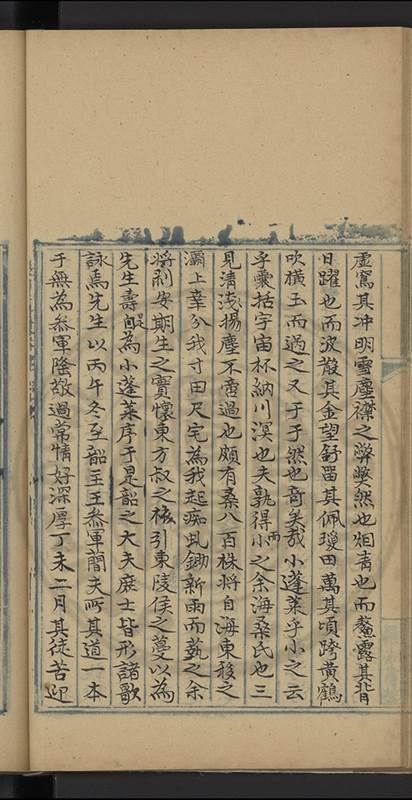 虛寫其冲明雪塵襟之瀿然也烟青也而鰲露其背
日躍也而波散其金望舒留其佩瓊田萬其頃跨黃鶴
吹橫玉而過之又于于然也奇矣哉小蓬萊乎小之云
乎囊括宇宙杯納川溟也夫孰得而小之余海桑氏也三
見清淺揚塵不啻過也頗有桑八百株將自海東移之
灞上幸分我寸田尺宅為我起痴虬鋤新雨而蓺之余
將剖安期生之實懷東方叔之核引東陵侯之蔓以為
先生壽是為小蓬萊序于是韶之大夫庶士皆形諸歌
詠焉先生以丙午冬至韶主王叅軍蘭夫所其道一本
于無為叅軍隆敬過常情好深厚丁未二月其徒苦迎